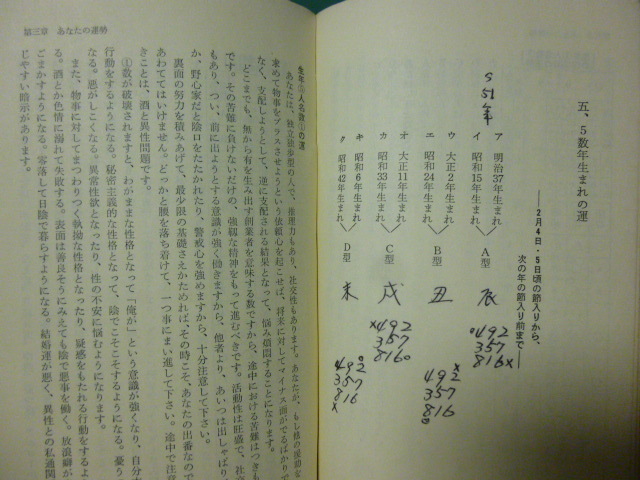 五、5数年生まれの運
――2月4日・5日頃の節入りから、
次の年の節入り前まで――
S51年
ア 明治37年生まれ
イ 昭和15年生まれ
A型 辰
492
357
816
ウ 大正2年生まれ
エ 昭和24年生まれ
B型 丑
492
357
816
オ 大正11年生まれ
カ 昭和33年生まれ
C型 戌
492
357
816
キ 昭和6年生まれ
ク 昭和42年生まれ
D型 未
492
357
816
第三章 あなたの運勢
生年⑤人名数①の運
あなたは、独立独歩型の人で、推理力もあり、社交性もあります。あなたが、もし他の援助な
求めて物事をプラスさせようという依頼心を起こせば、将来に対してマイナス面がでるばかりで
なく、支配しようとして、逆に支配される結果となって、悩み煩悶することになります。
どこまでも、無から有を生み出す創業者を意味する数ですから、途中における苦難はつきも
です。その苦難に負けないだけの、強靱な精神をもって進むべきです。活動性は旺盛で、社交
もあり、つい、前に出ようとする意識が強く働きますから、他者より、あいつは出しゃばり
か、野心家だと陰口をたたかれたり、警戒心を強めますから、十分注意して下さい。
裏面の努力を積みあげて、最少限の基礎さえかためれば、その時こそ、あなたの出番なので
あわててはいけません。どっかと腰を落ち着けて、一つ事にまい進して下さい。途中で注意
きことは、酒と異性問題です。
①数が破壊されますと、わがままな性格となって「俺が」という意識が強くなり、自分本
行動をするようになる。秘密主義的な性格となって、陰でこそこそするようになる。憂う
なる。悪がしこくなる。異常性欲となったり、性の不安に悩むようになる。
また、物事に対してまつわりつく執拗な性格となったり、疑惑をもたれる行動をするよ
る。酒とか色情に溺れて失敗する。表面は善良そうにみえても陰で悪事を働く。放浪癖が
じやすい暗示があります。零落して日陰で暮らすようになる。結婚運が悪く、異性との私通関